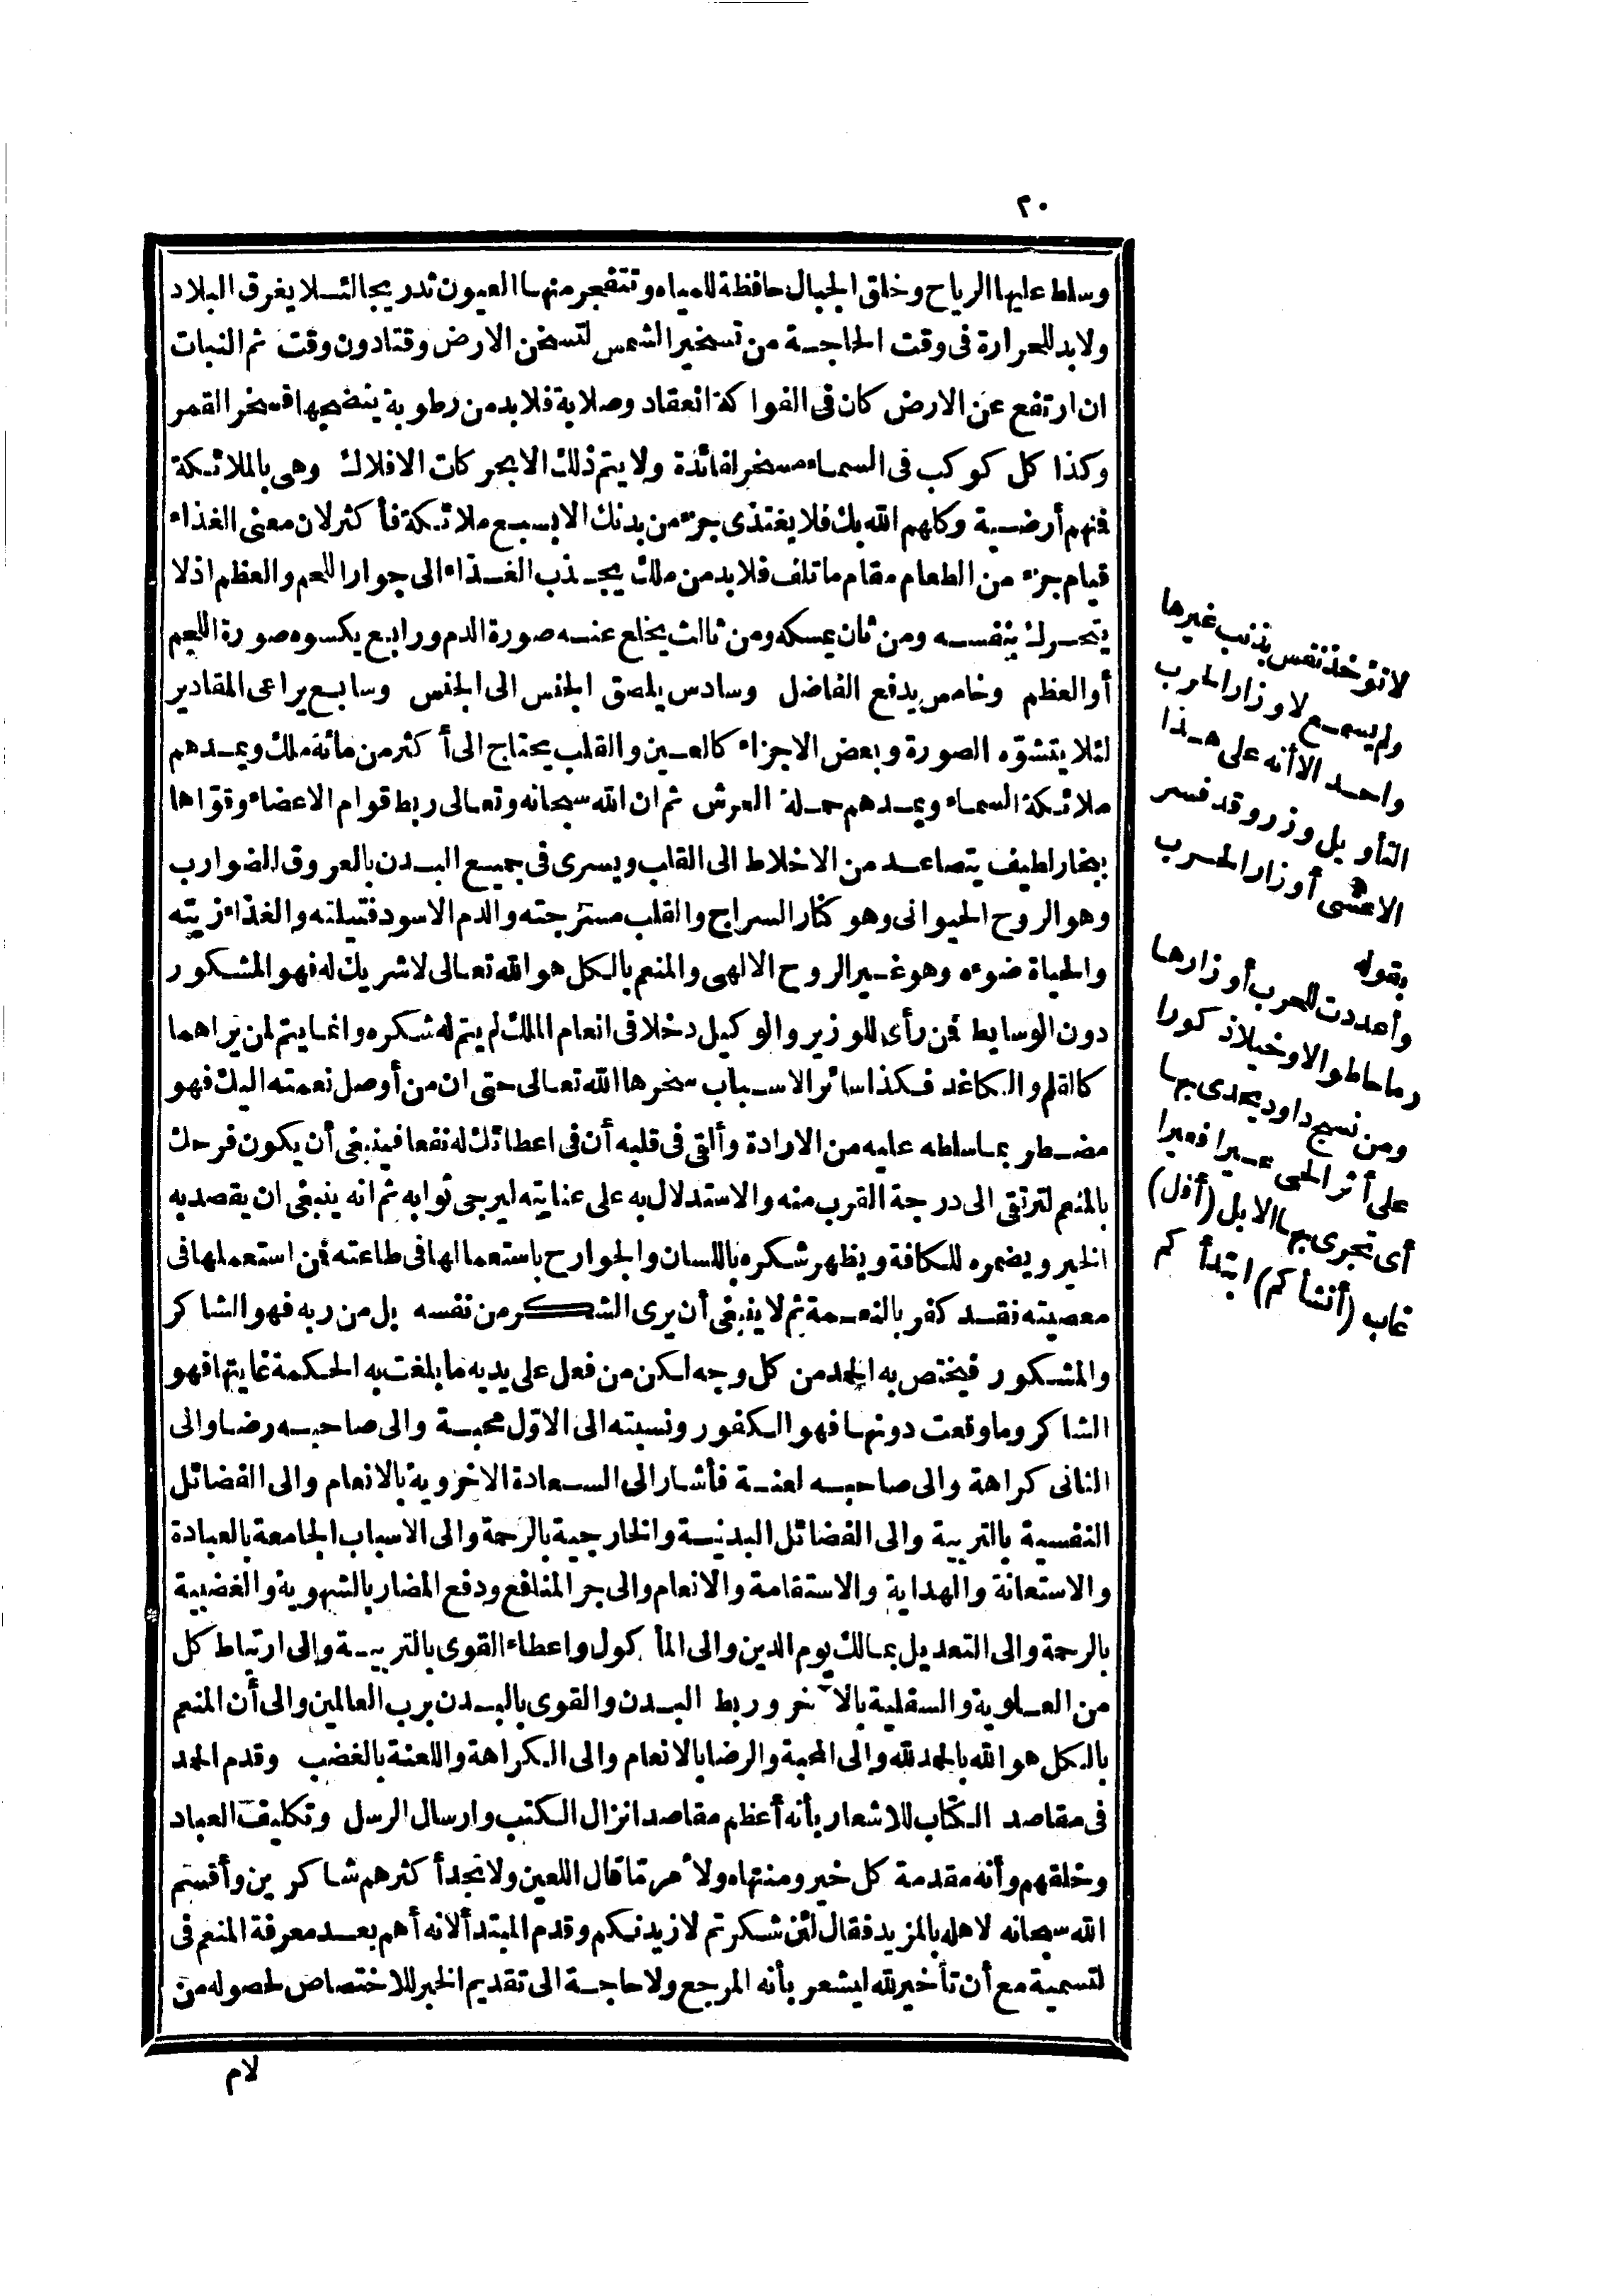 ٢٠
وسلط عليها الرياح وخلق الجبال حافظة للمياه وتتفجر منها العيون تدريجا لئلا يغرق البلاد
ولابد للحرارة فى وقت الحاجة من تسخير الشمس لتسخن الارض وقتا دون وقت ثم النبات
ان ارتفع عن الارض كان فى الفواكه انعقاد وصلابة فلابد من رطوبة ينضجها فسخر القمر
وكذا كل كوكب فى السماء مسخر لفائدة ولا يتم ذلك الا بحركات الافلاك وهى بالملائكة
فنهم أرضية وكلهم الله بك فلا يغتذى جزء من بدنك الا بسبع ملائكة فأكثر لان معنى الغذاء
قيام جزء من الطعام مقام ما تلف فلابد من ملك يجذب الغذاء الى جوار اللحم والعظم اذ لا
يتحرك بنفسه ومن ثان يمسكه ومن ثالث يخلع عنه صورة الدم ورابع يكسوه صورة اللحم
أو العظم وخامس يدفع الفاضل وسادس يلصق الجنس الى الجنس وسابع يراعى المقادير
لئلا يتشوّه الصورة وبعض الاجزاء كالعين والقلب يحتاج الى أكثر من مائة ملك ويمدهم
ملائكة السماء ويمدهم حملة العرش ثم ان الله سبحانه وتعالى ربط قوام الاعضاء وقوّاها
ببخار لطيف يتصاعد من الاخلاط الى القلب ويسرى فى جميع البدن بالعروق الضوارب
وهو الروح الحيوانى وهو كنار السراج والقلب مسترجته والدم الاسود فتيلته والغذاء زيته
والحياة ضوءه وهو غير الروح الالهى والمنعم بالكل هو الله تعالى لا شريك له فهو المشكور
دون الوسايط فمن رأى للوزير والوكيل دخلا فى انعام الملك لم يتم له شكره وانما يتم لمن يراهما
كالقلم والكاغد فكذا سائر الاسباب سخرها الله تعالى حتى ان من أوصل نعمته اليك فهو
مضطر بما سلطه عليه من الارادة وألقى فى قلبه أن فى اعطائك له نفعا فينبغى أن يكون فرحك
بالمنعم لترتقى الى درجة القرب منه والاستدلال به على عنايته ليرجى ثوابه ثم انه ينبغى ان يقصد به
الخير ويضمره للكافة ويظهر شكره باللسان والجوارح باستعمالها فى طاعته فمن استعملها فى
معصيته فقد كفر بالنعمة ثم لا ينبغى أن يرى الشكر من نفسه بل من ربه فهو الشاكر
والمشكور فيختص به الحمد من كل وجه لكن من فعل على يديه ما بلغت به الحكمة غايتها فهو
الشاكر وما وقعت دونها فهو الكفور ونسبته الى الاوّل محبة والى صاحبه رضا والى
الثانى كراهة والى صاحبه لعنة فأشار الى السعادة الاخروية بالانعام والى الفضائل
النفسية بالتربية والى الفضائل البدنية والخارجية بالرحمة والى الاسباب الجامعة بالعبادة
والاستعانة والهداية والاستقامة والانعام والى جر المنافع ودفع المضار بالشهوية والغضبية
بالرحمة والى التعديل بمالك يوم الدين والى المأكول واعطاء القوى بالتربية والى ارتباط كل
من العلوية والسفلية بالآخر وربط البدن والقوى بالبدن برب العالمين والى أن المنعم
بالكل هو الله بالحمد لله والى المحبة والرضا بالانعام والى الكراهة واللعنة بالغضب وقدم الحمد
فى مقاصد الكتاب للاشعار بأنه أعظم مقاصد انزال الكتب وارسال الرسل وتكليف العباد
وخلقهم وأنه مقدمة كل خير ومنتهاه ولأمر ما قال اللعين ولا تجد أكثرهم شاكرين وأقسم
الله سبحانه لاهله بالمزيد فقال لئن شكرتم لازيدنكم وقدم المبتدأ لانه أهم بعد معرفة المنعم فى
لتسمية مع أن تأخير لله ليشعر بأنه المرجع ولا حاجة الى تقديم الخبر للاختصاص لحصوله من
لام
لا تؤخذ نفس بذنب غيرها
ولم يسمع لاوزار الحرب
واحد الا أنه على هذا
التأويل وزر وقد فسر
الاعشى أوزار الحرب
بقوله
وأعددت للحرب أوزارها
رماحا طوالا وخيلا ذكورا
ومن نسج داود يحدى بها
على أثر الحى عيرا فعيرا
أى تجرى بها الابل (أفل)
غاب (أنشأكم) ابتدأكم